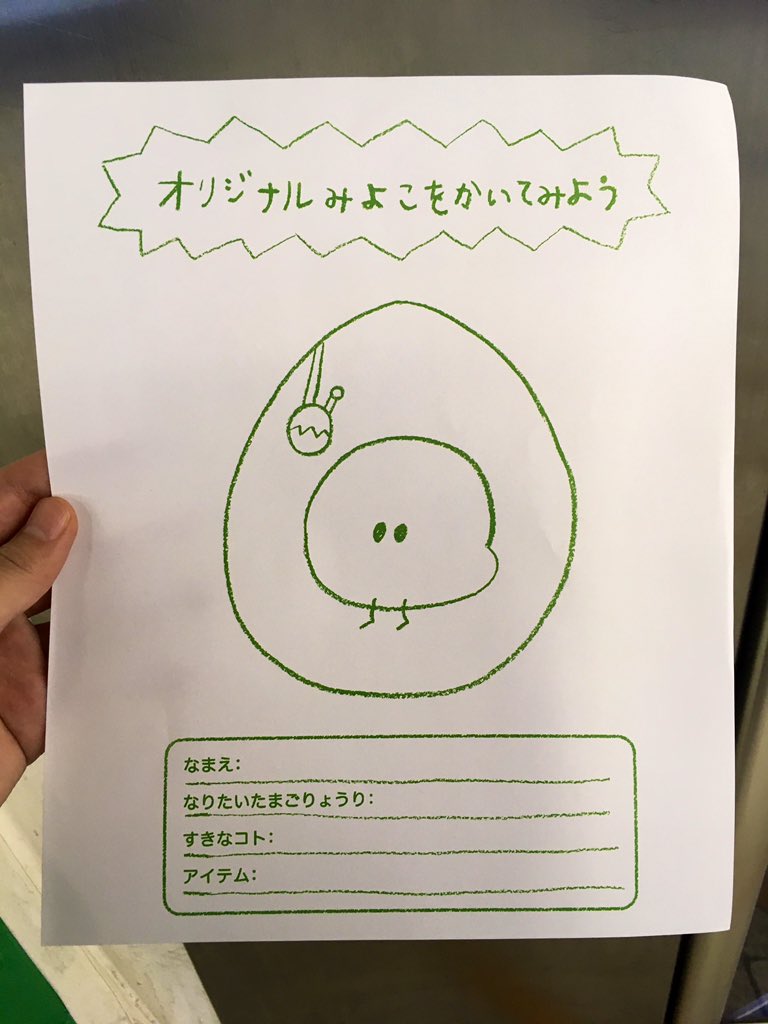 オリジナルみよこをかいてみよう
なまえ:
なりたいたまごりょうり:
すきなコト:
アイテム: